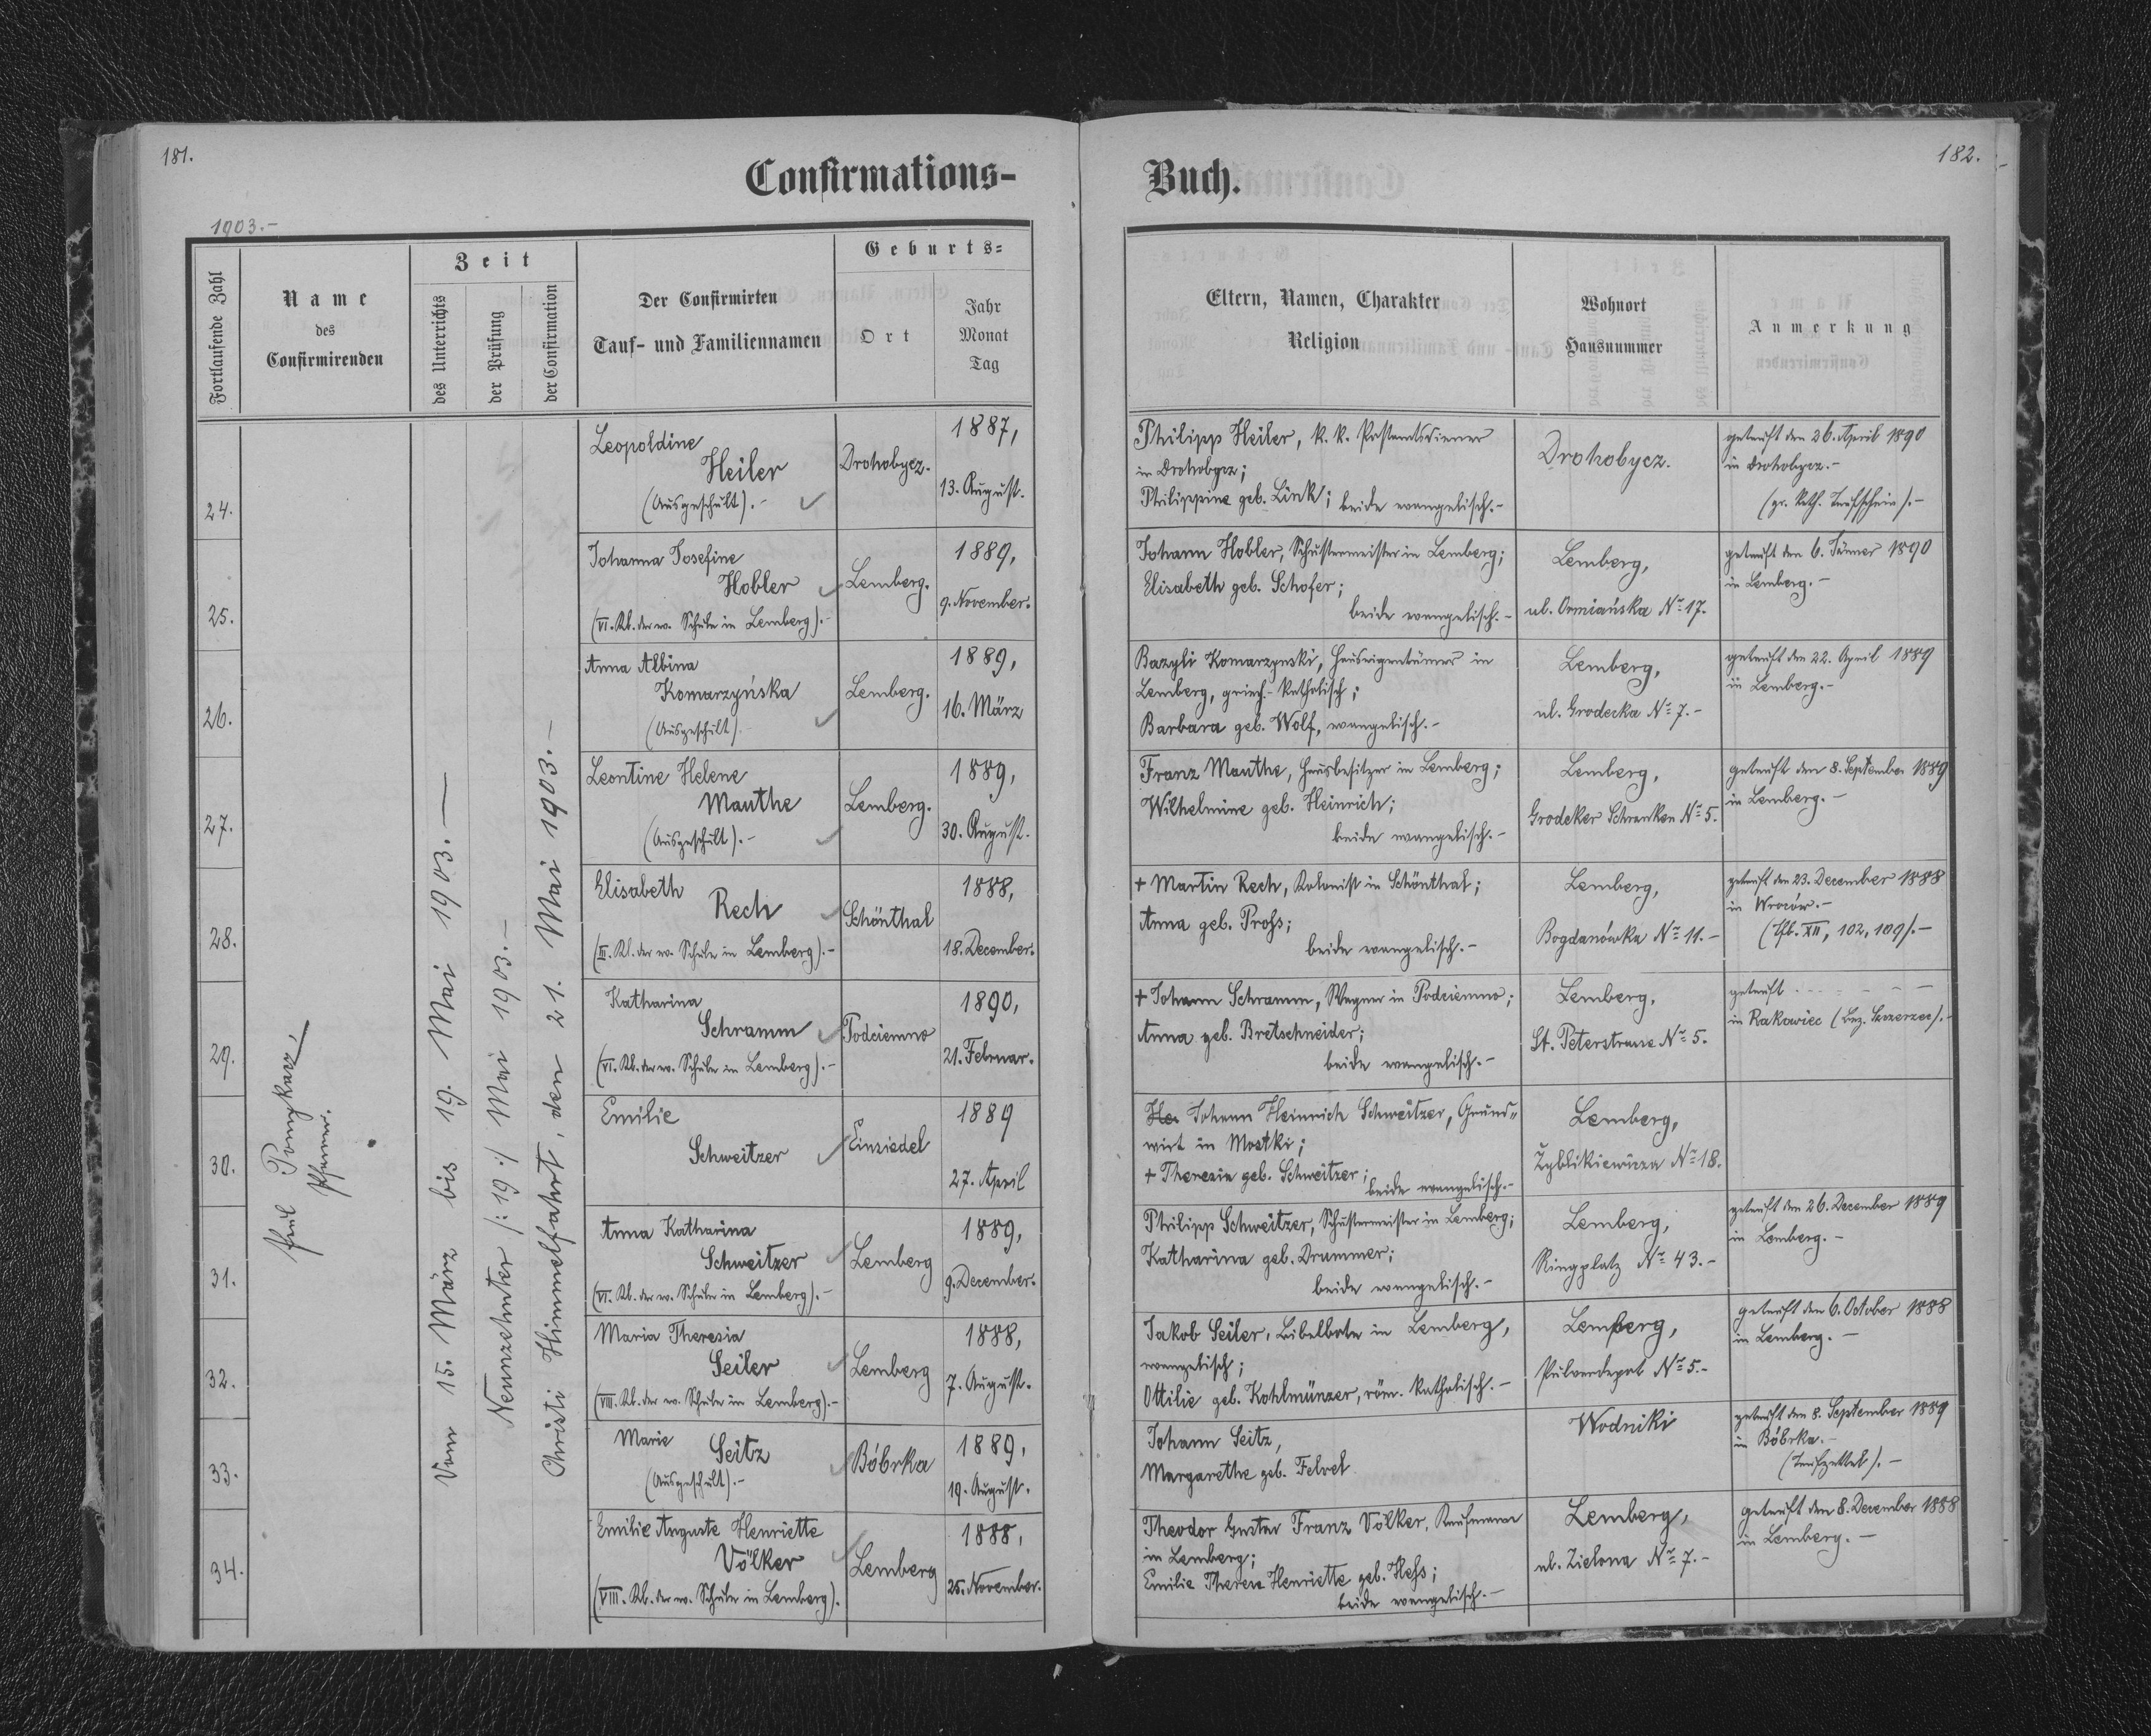 181.
Confirmations-
1903.-
Fortlaufende Zahl
Name
des
Confirmirenden
Zeit
des Unterrichts
der Prüfung
der Confirmation
Der Confirmirten
Tauf- und Familiennamen
Geburts-
Ort
Jahr
Monat
Tag
Pfarrer.
Vom 15. März bis 19. Mai 1903.
Neunzehnter /:19:/ Mai 1903.-
Christi Himmelfahrt, den 21. Mai 1903.-
24.
Leopoldine
Heiler
(Ausgeschult).-
Drohobycz.
1887,
13. August.
25.
Johanna Josefine
Hobler
(VI. Kl. der ev. Schule in Lemberg).-
Lemberg.
1889,
9. November.
26.
Anna Albina
Komarzyńska
(Ausgeschult).
Lemberg.
1889,
16. März
27.
Leontine Helene
Mauthe
(Ausgeschult).-
Lemberg.
1889,
30. August.
28.
Elisabeth
Rech
(III. Kl. der ev. Schule in Lemberg).-
Schönthal
1888,
18. December.
29.
Katharina
Schramm
(VI. Kl. der ev. Schule in Lemberg).-
Podciemno
1890,
21. Februar.
30.
Emilie
Schweitzer
Einsiedel
1889
27. April
31.
Anna Katharina
Schweitzer
(VI. Kl. der ev. Schule in Lemberg).-
Lemberg
1889,
9. December.
32.
Maria Theresia
Seiler
(VIII. Kl. der ev. Schule in Lemberg).-
Lemberg
1888,
7. August.
33.
Marie
Seitz
(Ausgeschult).-
Bóbrka
1889,
19. August.
34.
Emilie Auguste Henriette
Völker
(VIII. Kl. der ev. Schule in Lemberg).
Lemberg
1888,
25. November.
182.
Buch.
Eltern, Namen, Charakter
Religion
Wohnort
Hausnummer
Anmerkung
Philipp Heiler, k. k. Postamtsdiener
in Drohobycz;
Philippine geb. Link; beide evangelisch.-
Drohobycz.
getauft den 26. April 1890
in Drohobycz.-
(gr. kath. Taufschein).-
Johann Hobler, Schustermeister in Lemberg;
Elisabeth geb. Schofer;
beide evangelisch.-
Lemberg,
ul. Ormiańska No 17.
getauft den 6. Jänner 1890
in Lemberg.-
Bazyli Komarzynski, Hauseigentümer in
Lemberg, griech.-katholisch;
Barbara geb. Wolf, evangelisch.-
Lemberg,
ul. Grodecka No 7.-
getauft den 22. April 1889
in Lemberg.-
Franz Mauthe, Hausbesitzer in Lemberg;
Wilhelmine geb. Heinrich;
beide evangelisch.-
Lemberg,
Grodeker Schranken No 5.
getauft den 8. September 1889
in Lemberg.-
+ Martin Rech, Kolonist in Schönthal;
Anna geb. Proß;
beide evangelisch.-
Lemberg,
Bogdanówka No 11.-
getauft den 23. December 1888
in Wroców.-
XII, 102, 109/.-
+ Johann Schramm, Wagner in Podciemno;
Anna geb. Bretschneider;
beide evangelisch.-
Lemberg,
St. Peterstrasse No 5.
getauft - - - - -
in Rakowiec (Bez. Szczerzec).-
Johann Heinrich Schweitzer, Grund-
wirt in Mostki;
+ Theresia geb. Schweitzer; beide evangelisch.-
Lemberg,
Zyblikiewicza No 18.
Philipp Schweitzer, Schustermeister in Lemberg;
Katharina geb. Drummer;
beide evangelisch.-
Lemberg,
Ringplatz No 43.-
getauft den 26. December 1889
in Lemberg.-
Jakob Seiler, Bibelbote in Lemberg,
evangelisch;
Ottilie geb. Kohlmünzer, röm. katholisch.-
Lemberg,
Pulverdepot No 5.-
getauft den 6. October 1888
in Lemberg.-
Johann Seitz,
Margarethe geb.
Wodniki
getauft den 8. September 1889
in Bóbrka.-
(Taufzettel).-
Theodor Gustav Franz Völker, Kaufmann
in Lemberg;
Emilie Therese Henriette geb. Heß;
beide evangelisch.-
Lemberg,
ul. Zielona No 7.-
getauft den 8. December 1888
in Lemberg.-